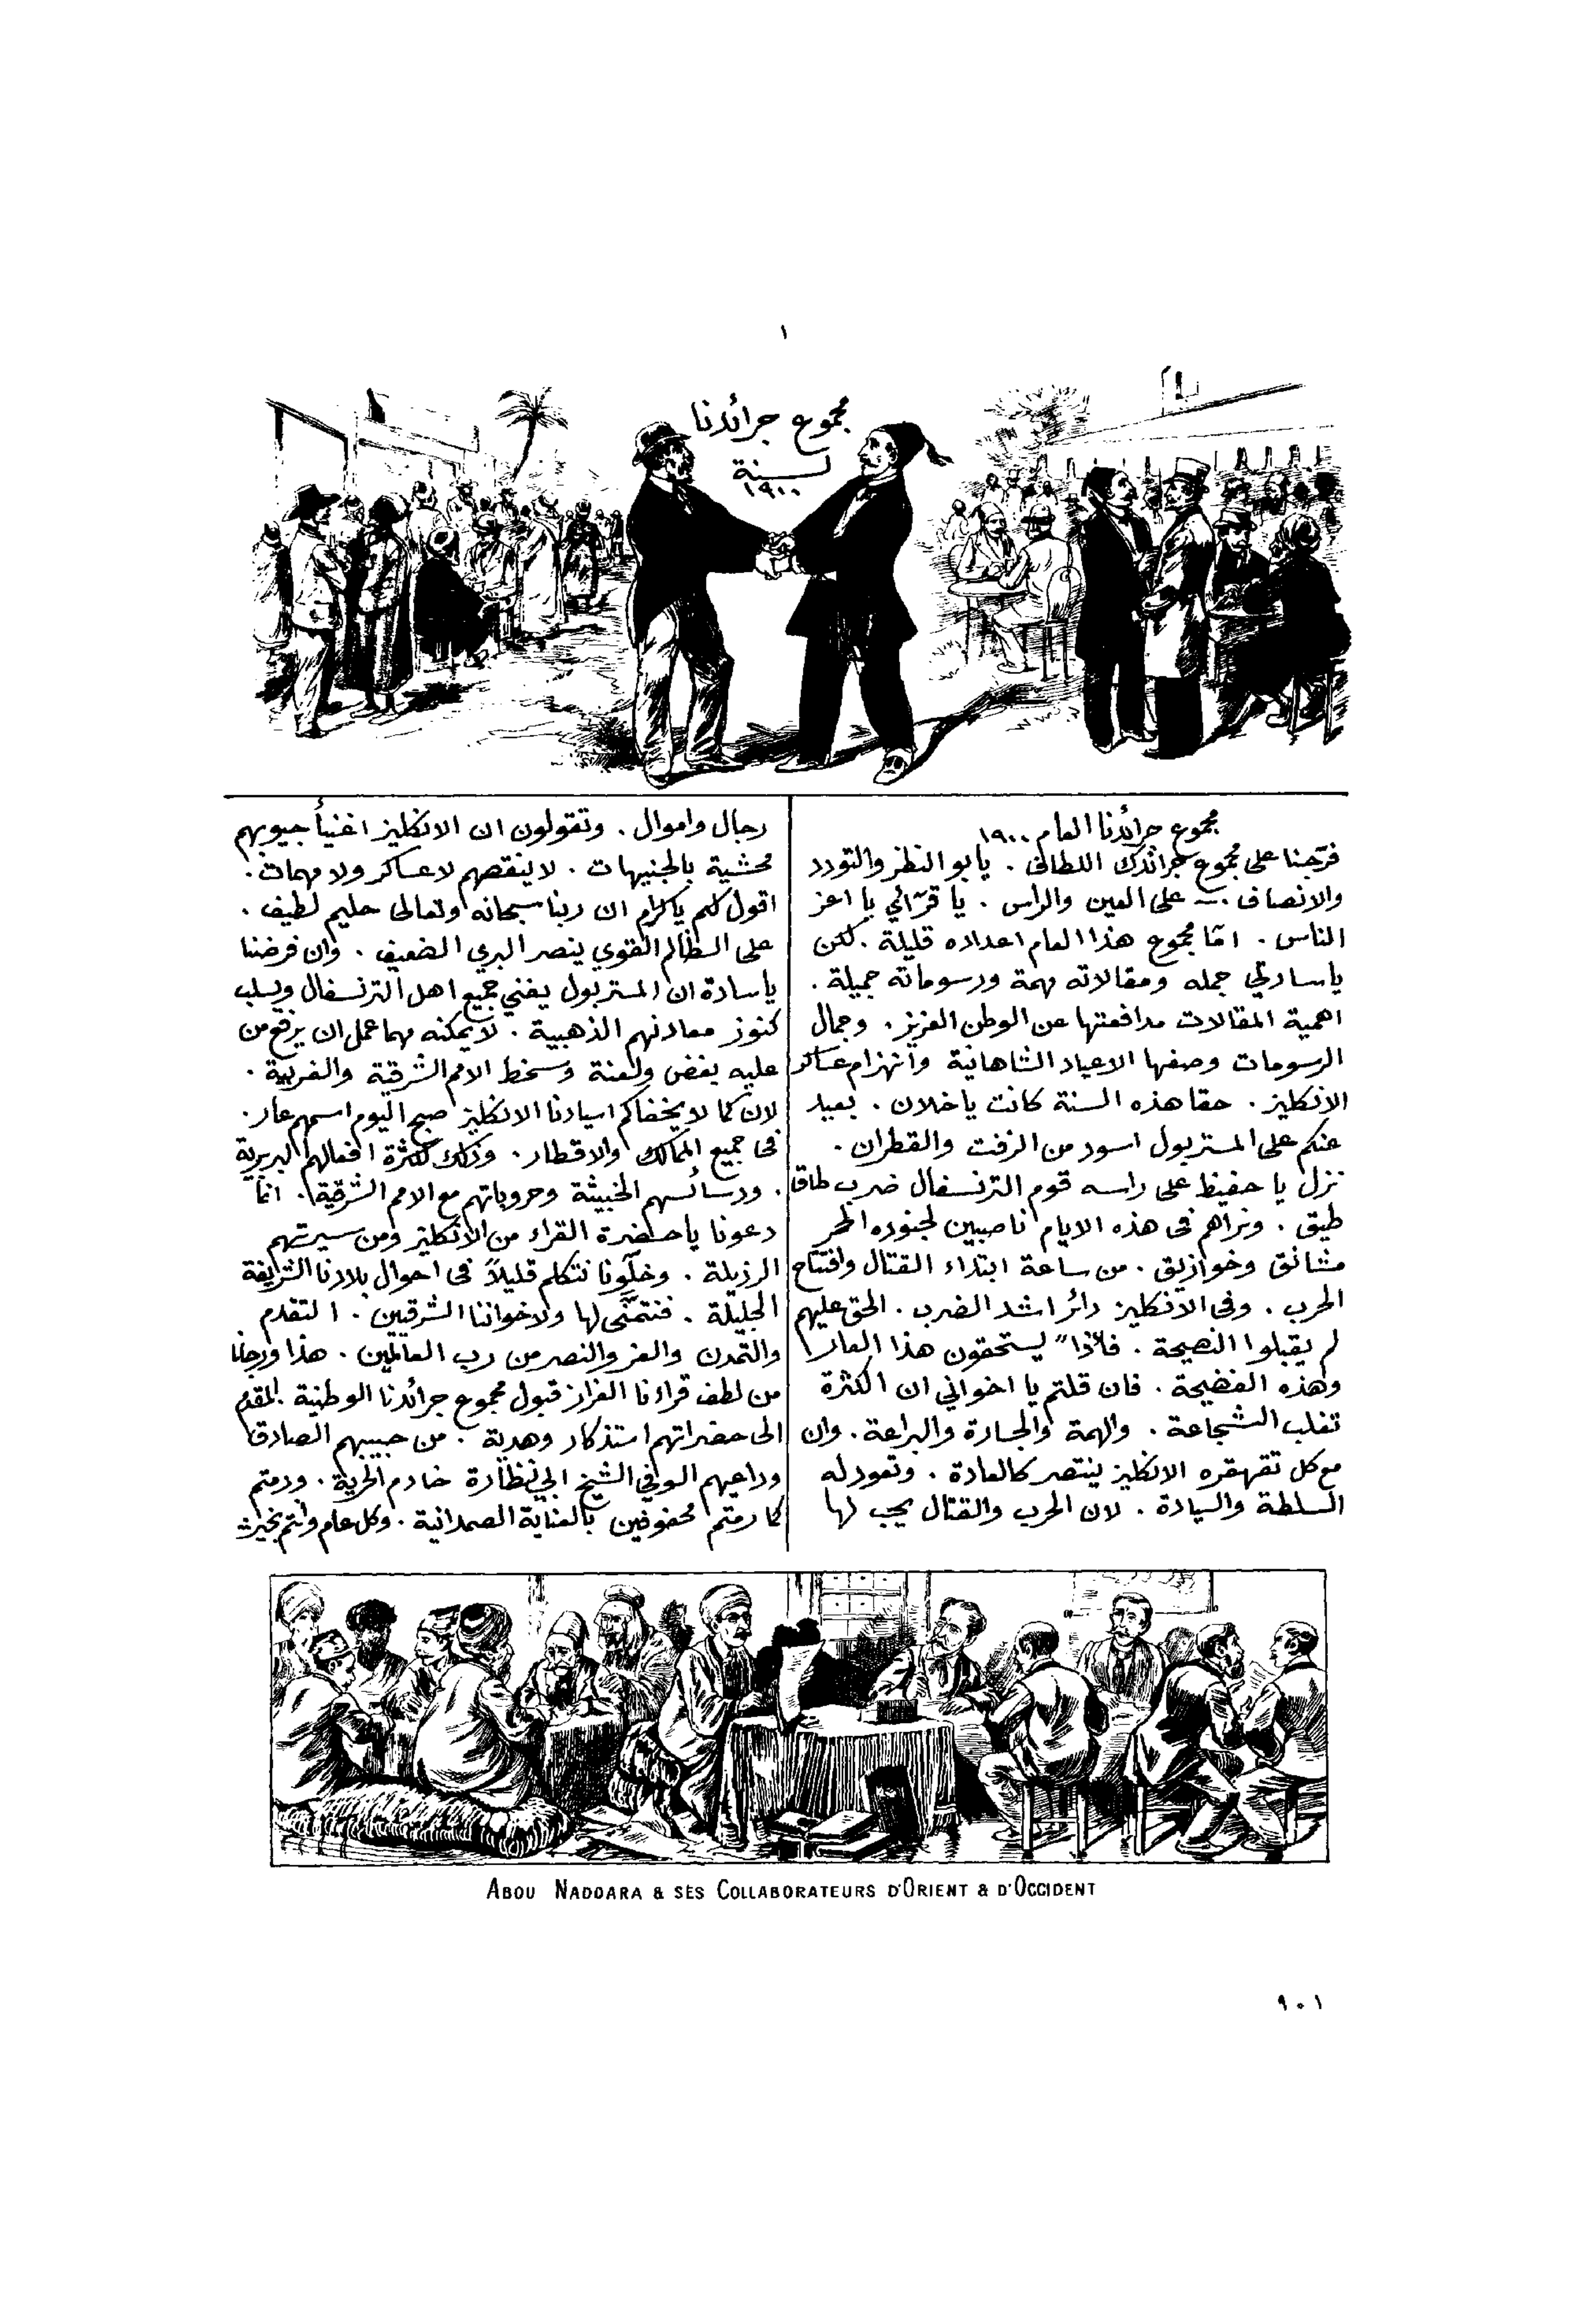 ١
مجموع جرائدنا
لسنة
١٩٠٠
مجموع جرائدنا العام ١٩٠٠
فرّجنا على مجموع جرائدك اللطاف . يابو النظر والتودد
والانصاف . — على العين والراس . يا قرّائي يا اعز
الناس . امّا مجموع هذا العام اعداده قليلة . لكن
ياسادتي جمله ومقالاته مهمة ورسوماته جميلة .
اهمية المقالات مدافعتها عن الوطن العزيز . وجمال
الرسومات وصفها الاعياد الشاهانية وانهزام عساكر
الانكليز . حقا هذه السنة كانت ياخلان . بعيد
عنكم على المستر بول اسود من الزفت والقطران .
نزل يا حفيظ على راسه قوم الترنسفال ضرب طاقا
طيق . ونراهم فى هذه الايام ناصبين لجنوده الحمر
مشانق وخوازيق . من ساعة ابتداء القتال وافتتاح
الحرب . وفى الانكليز دائر اشد الضرب . الحق عليهم
لم يقبلوا النصيحة . فلاذا" يستحقون هذا العار
وهذه الفضيحة . فان قلتم يا اخواني ان الكثرة
تغلب الشجاعة . والهمة والجسارة والبراعة . وان
مع كل تقهقره الانكليز ينتصر كالعادة . وتعود له
السلطة والسيادة . لان الحرب والقتال يجب لها
رجال واموال . وتقولون ان الانكليز اغنيأ جيوبهم
محشية بالجنيهات . لا ينقصهم لا عساكر ولا مهمات .
اقول لكم ياكرام ان ربنا سبحانه وتعالى حليم لطيف .
على الظالم القوي ينصر البري الضعيف . وان فرضنا
ياسادة ان المستر بول يفني جميع اهل الترنسفال ويسلب
كنوز معادنهم الذهبية . لا يمكنه مهما عمل ان يرفع من
عليه بغض ولعنة وسخط الامم الشرقية والغربية .
لان كما لا يخفاكم اسيادنا الانكليز صبح اليوم اسمهم عار .
فى جميع الممالك والاقطار . وذلك لكثرة افعالهم البربرية
. ودسائسهم الخبيثة وحروباتهم مع الامم الشرقية . انما
دعونا ياحضرة القراء من الانكليز ومن سيرتهم
الرزيلة . وخلّونا نتكلم قليلاً فى احوال بلادنا الشريفة
الجليلة . فنتمنّى لها ولاخواننا الشرقيين . التقدم
والتمدن والعز والنصر من رب العالمين . هذا ورجانا
من لطف قراءنا العزاز قبول مجموع جرائدنا الوطنية المقدم
الى حضراتهم استذكار وهدية . من حبيبهم الصادق
وداعيهم الوفي الشيخ ابي نظارة خادم الحرية . ودمتم
كما رمتم محفوضين بالعناية الصمدانية . وكل عام وانتم بخير
ABOU NADDARA & SES COLLABORATEURS D'ORIENT & D'OCCIDENT
٩٠١